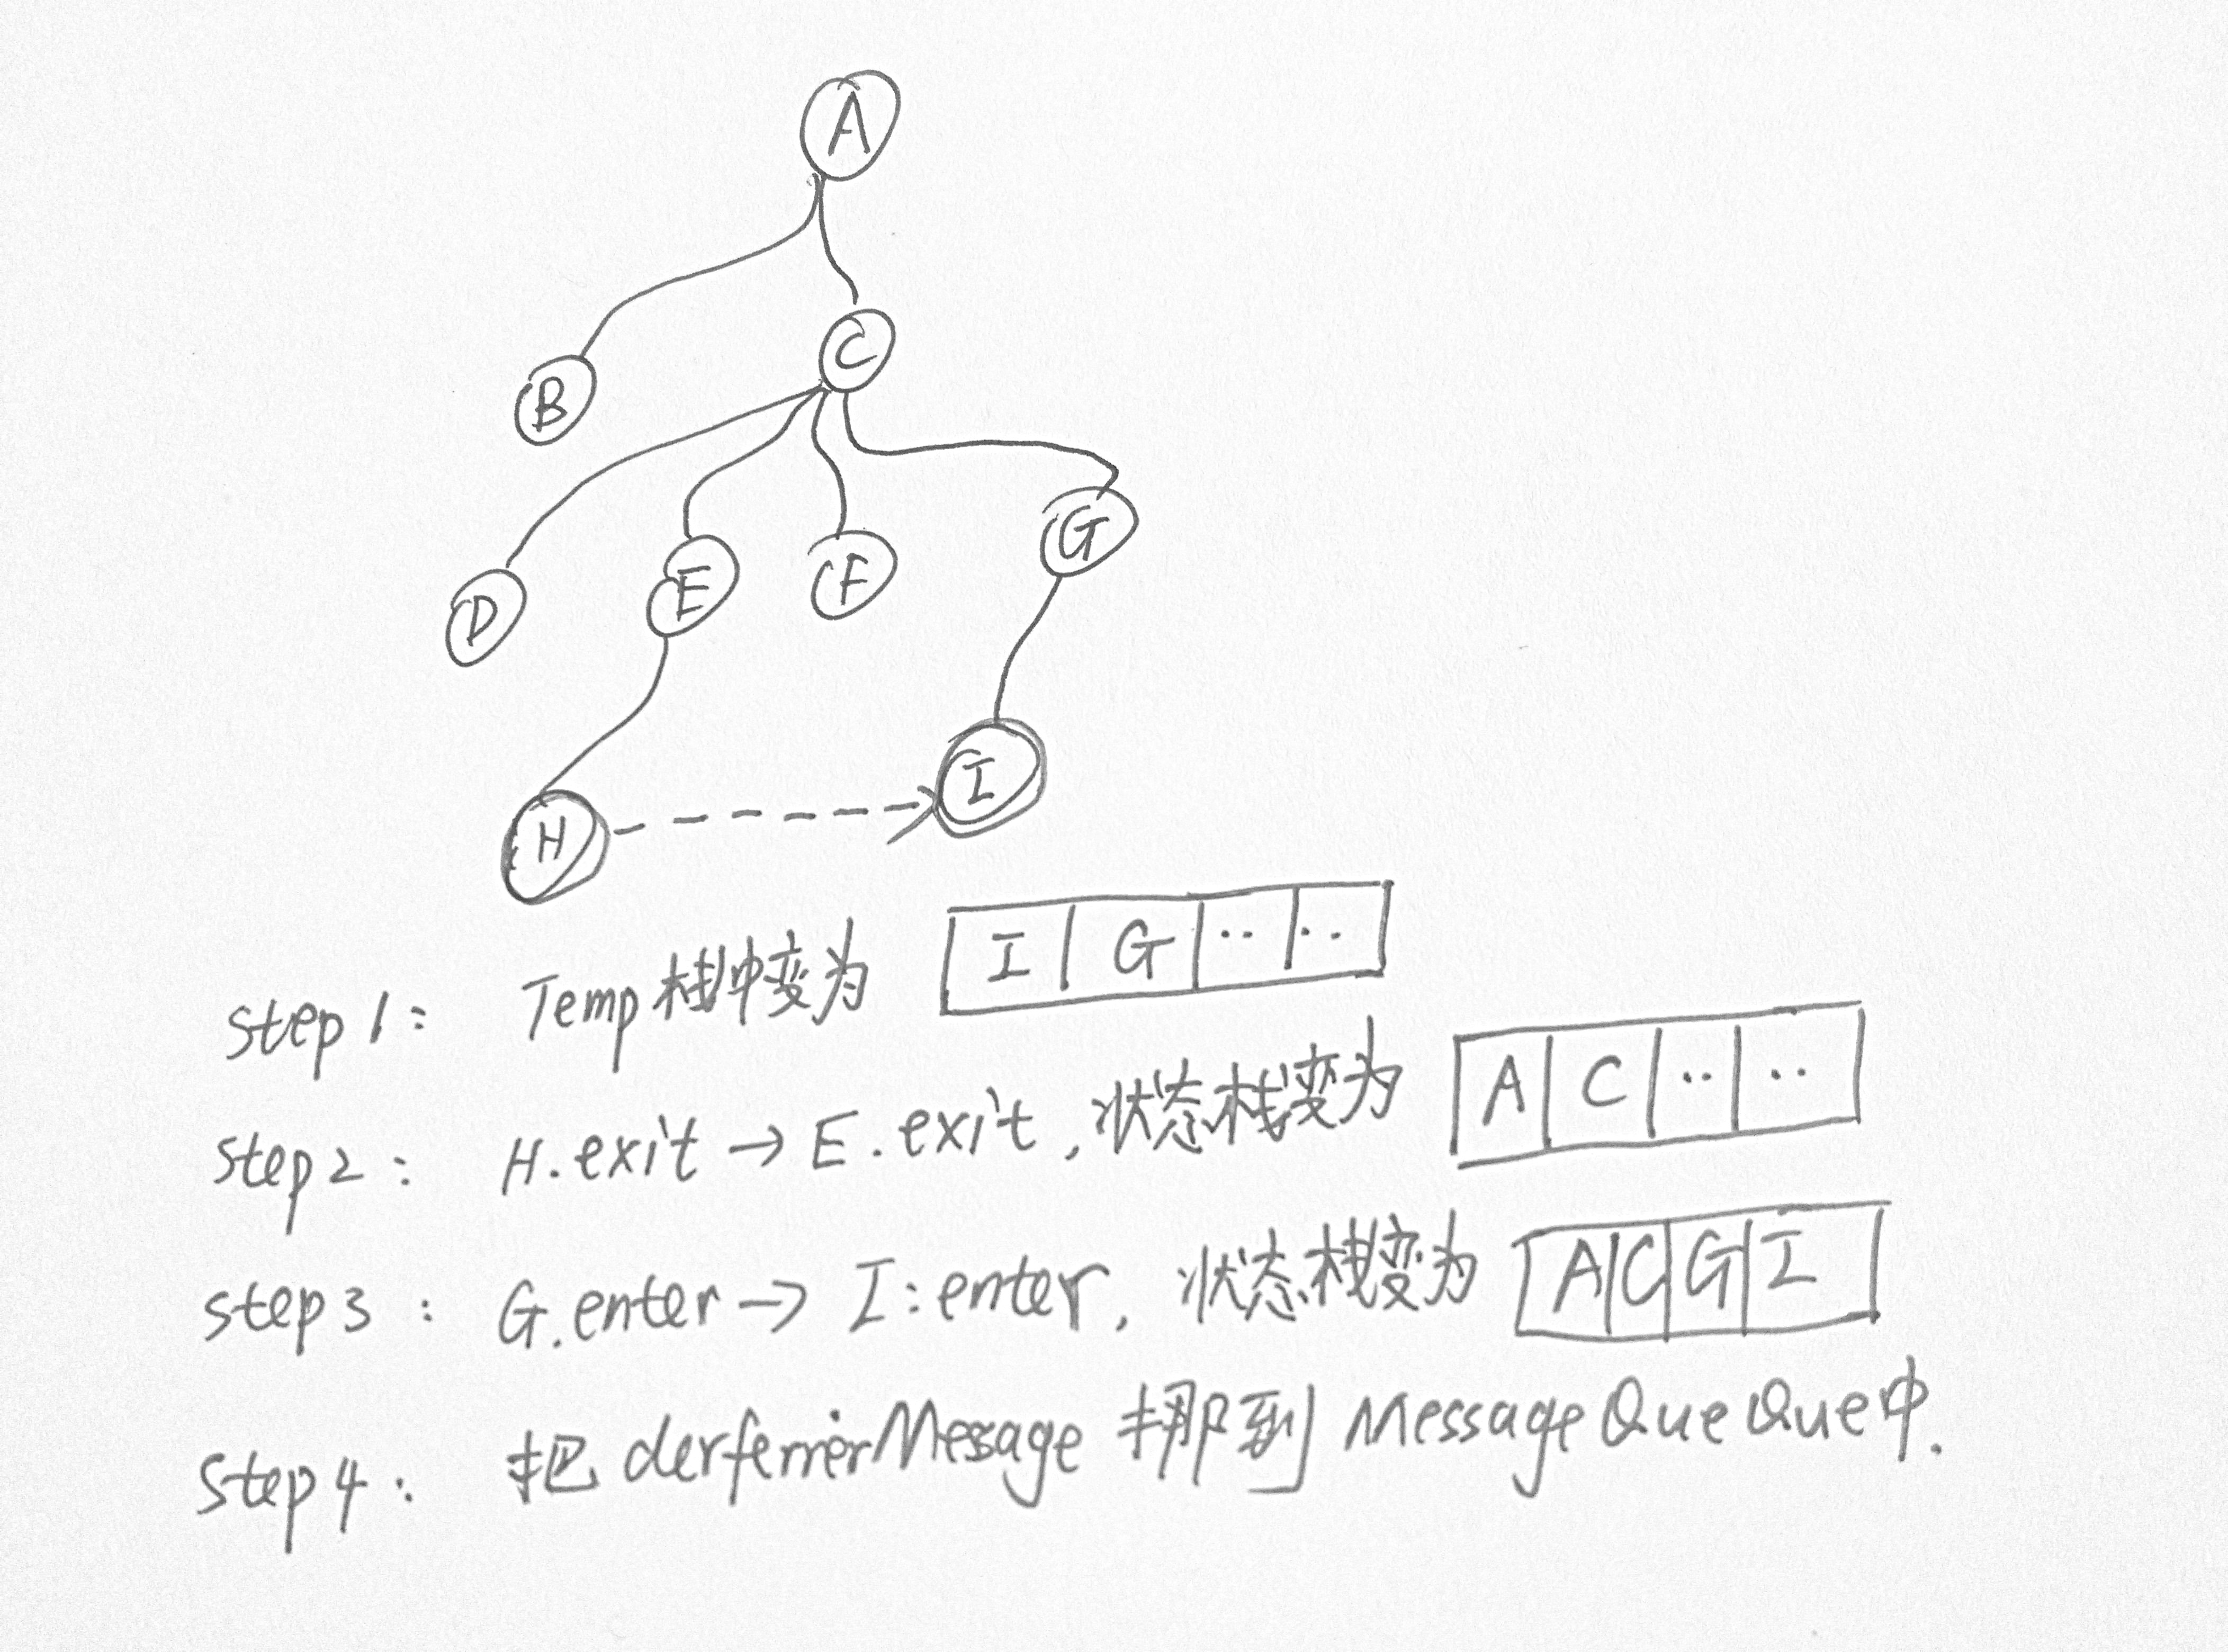 A
C
B
G
D E F
I
H
step 1: Temp栈中变为 I G .. ..
step 2: H.exit → E.exit, 状态栈变为 A C .. ..
step 3: G.enter → I:enter, 状态栈变为 A C G I
step 4: 把 derferrerMessage 挪到 MessageQueQue中.